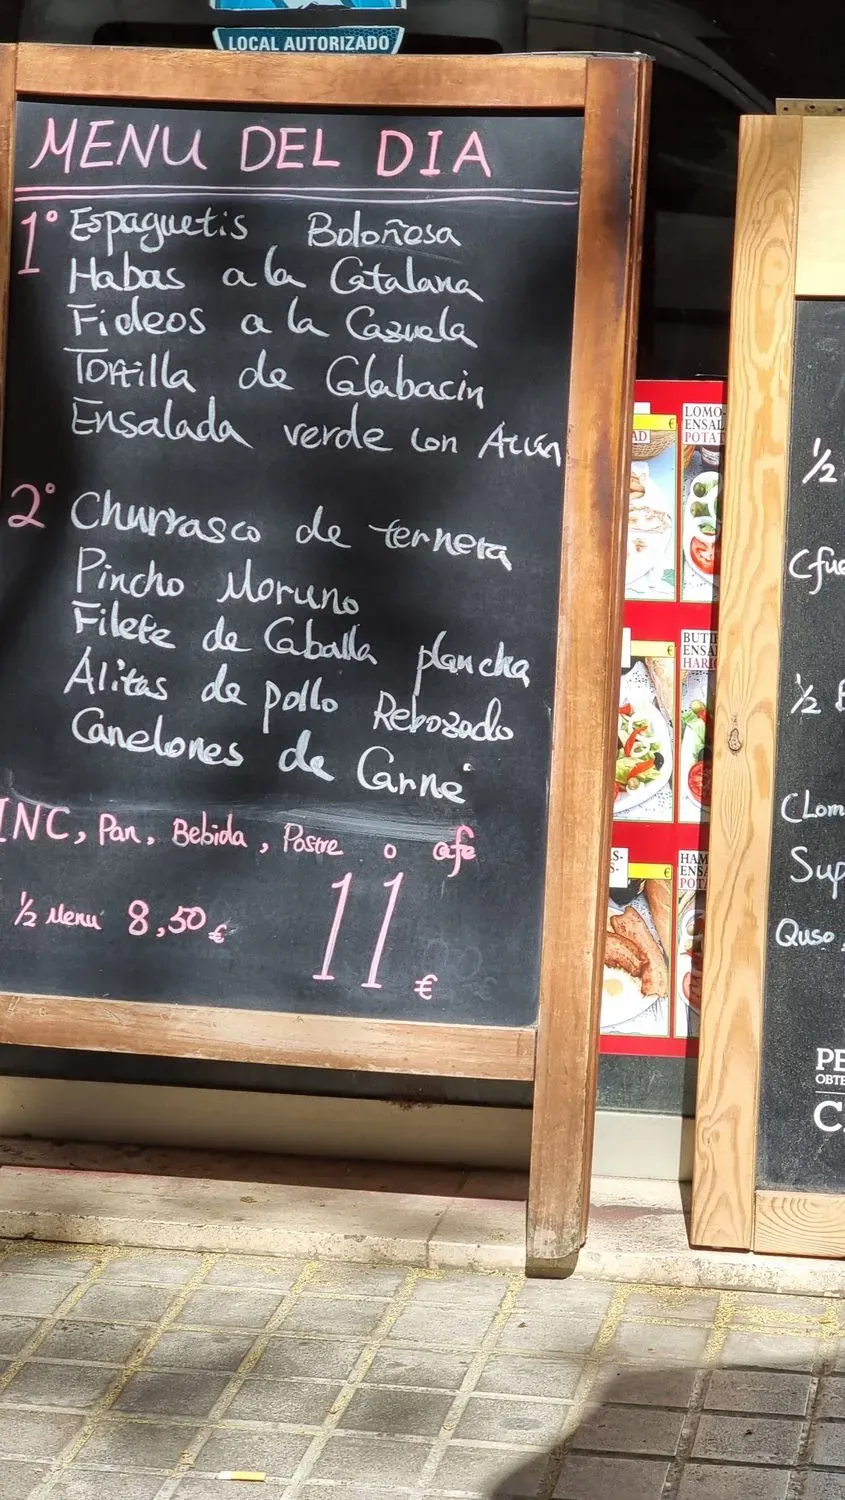 LOCAL AUTORIZADO
MENU DEL DIA
1º Espaguetis Boloñesa
Habas a la Catalana
Fideos a la Cazuela
Tortilla de Calabacin
Ensalada verde con Atún
2º Churrasco de ternera
Pincho Moruno
Filete de Caballa plancha
Alitas de pollo Rebozado
Canelones de Carne
INC, Pan, Bebida, Postre o cafe
½ Menu 8,50 €
11 €
LOMO
ENSAL
POTAT
€
AD
BUTI
ENSA
HARIC
€
HAM
ENSA
POT
€
½
(fue
½
(Lom
Sup
Quso,
PE
OBTE